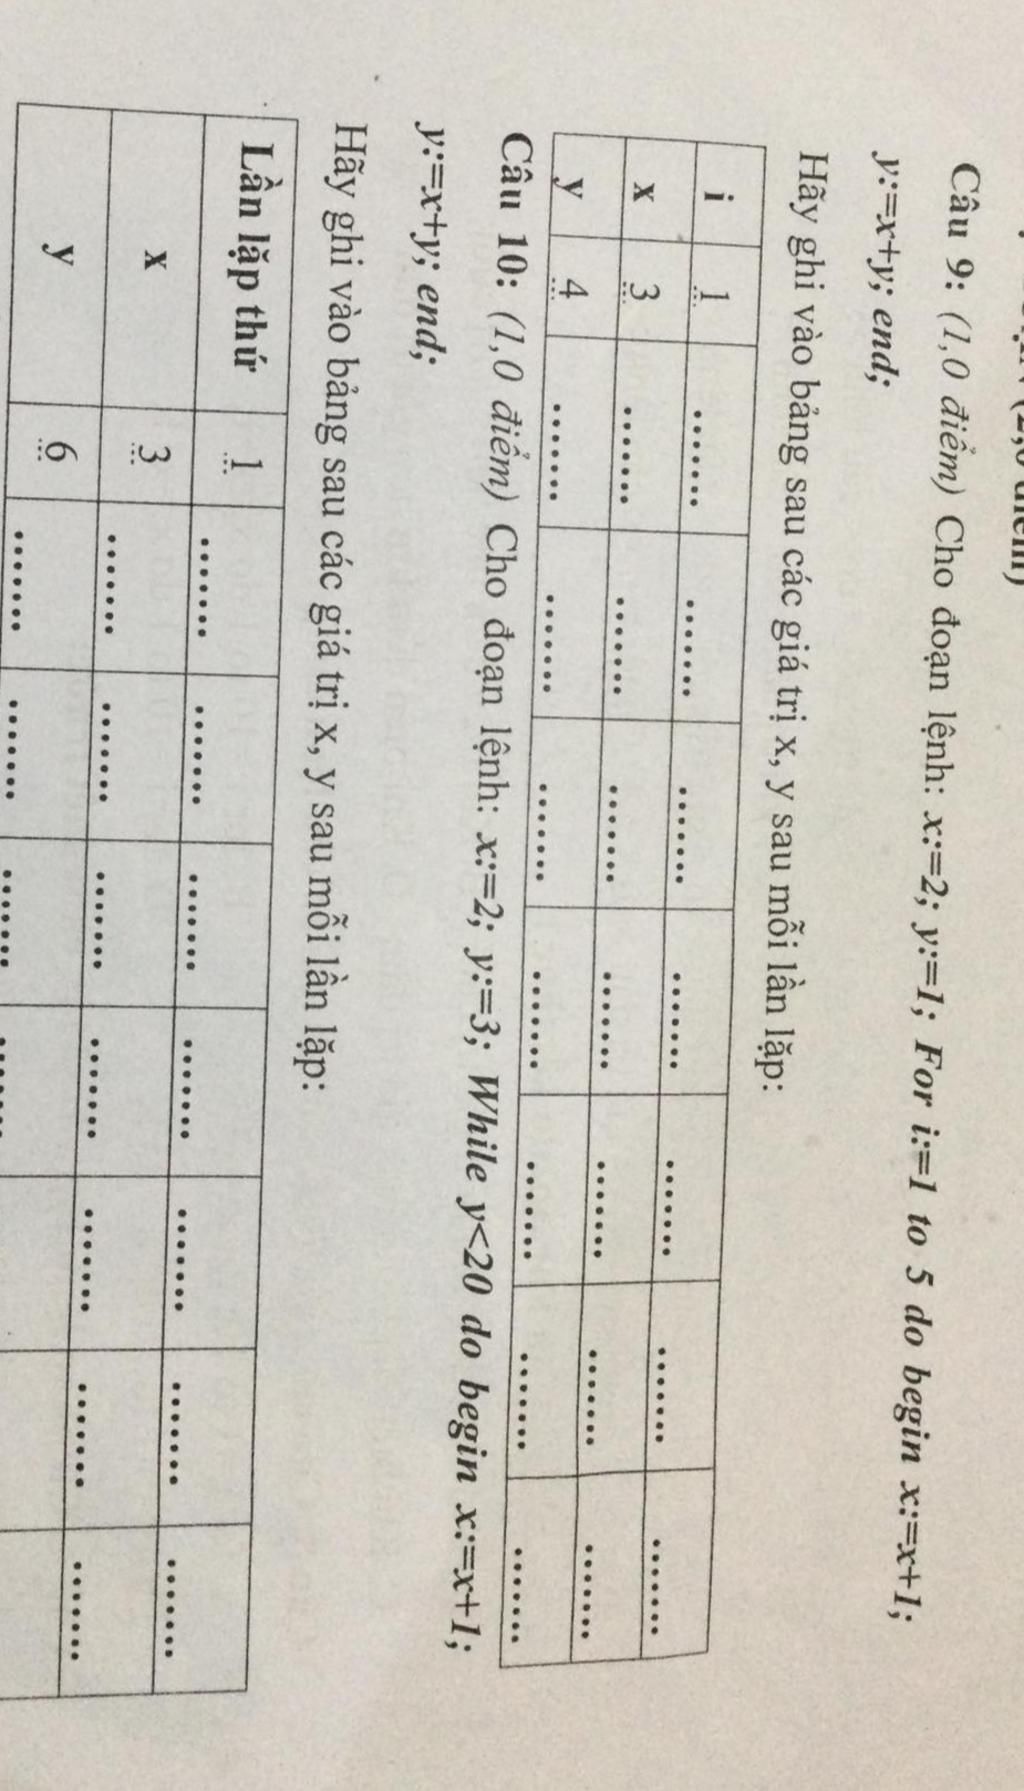 Câu 9: (1,0 điểm) Cho đoạn lệnh: x:=2; y:=1; For i:=1 to 5 do begin x:=x+1;
y:=x+y; end;
Hãy ghi vào bảng sau các giá trị x, y sau mỗi lần lặp:
i 1 ....... ....... ....... ....... ....... ....... .......
x 3 ....... ....... ....... ....... ....... ....... .......
y 4 ....... ....... ....... ....... ....... ....... .......
Câu 10: (1,0 điểm) Cho đoạn lệnh: x:=2; y:=3; While y<20 do begin x:=x+1;
y:=x+y; end;
Hãy ghi vào bảng sau các giá trị x, y sau mỗi lần lặp:
Lần lặp thứ 1 ....... ....... ....... ....... ....... ....... .......
x 3 ....... ....... ....... ....... ....... ....... .......
y 6 ....... ....... ....... .......